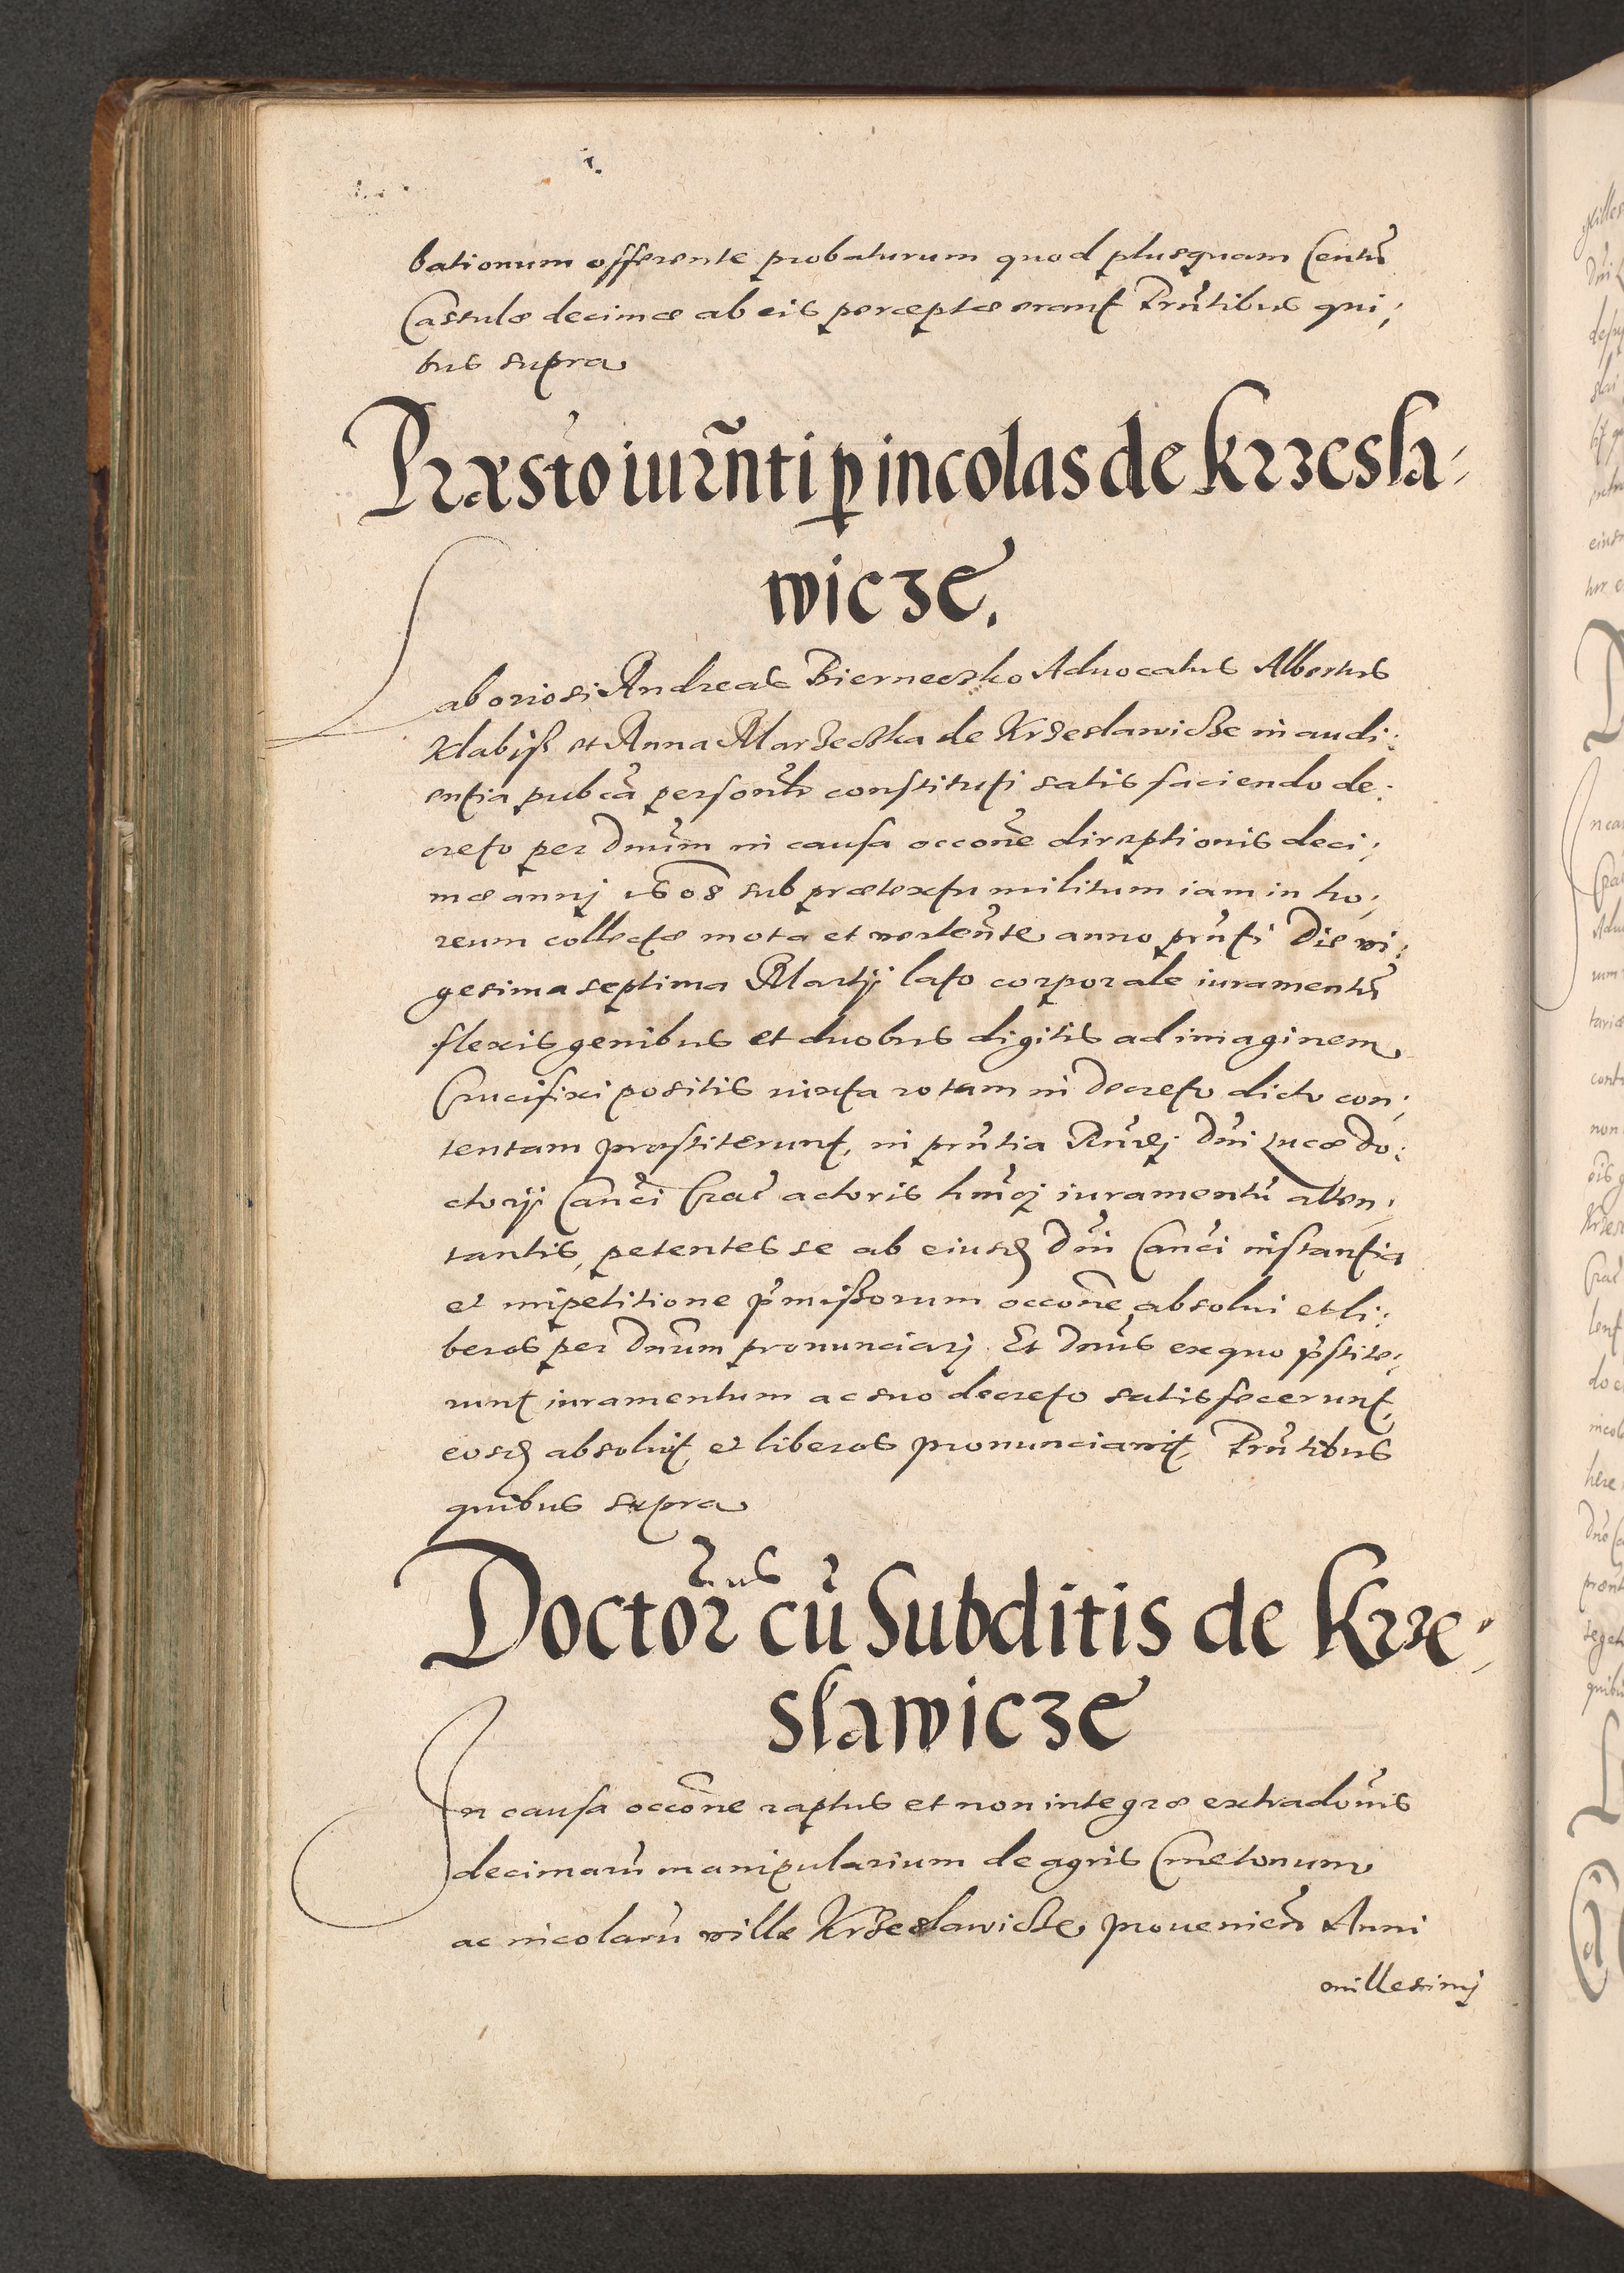 bationum offerente probaturum quod plusquam Centũ
Cassulæ decimæ ab eis perceptæ erant Prñtibus qui;
bus supra
Præsto iurñti p incolas de Krzesła-
wicze.
Laboriosi Andreas Bierneczko Aduocatus Albertus
et Anna Marzeczka de Krzesławicze in audi:
entia pubca personlr constituti satis faciendo de:
creto per Dnum in causa occone direptionis deci;
mæ annj 1608 sub prætextu militum iam in ho;
reum collectæ mota et vertente anno prnti Die vi:
gesima septima Martij lato corporale iuramentũ
flexis genibus et duobus digitis ad imaginem
Crucifixi positis iuxta rotam in Decreto dicto con;
tentam præstiterunt, in prntia Rndj Dni Lucæ Do:
ctorij Canci Crac actoris hmoj iuramentũ atten,
tantis, petentes se ab eiusd Dni Canci instantia
et impetitione pmissorum occone absolui et li:
beros per Dnum pronunciarj. Et Dnus ex quo pstite;
runt iuramentum ac suo decreto satisfecerunt,
eosd absoluit et liberos pronunciauit, Prntibus
quibus supra
Doctorius cũ Subditis de Krze-
sławicze
In causa occone raptus et non integræ extradonis
decimarũ manipularium de agris Cmetonum
ac incolarũ villæ Krzesławicze prouenien Anni
millesimj